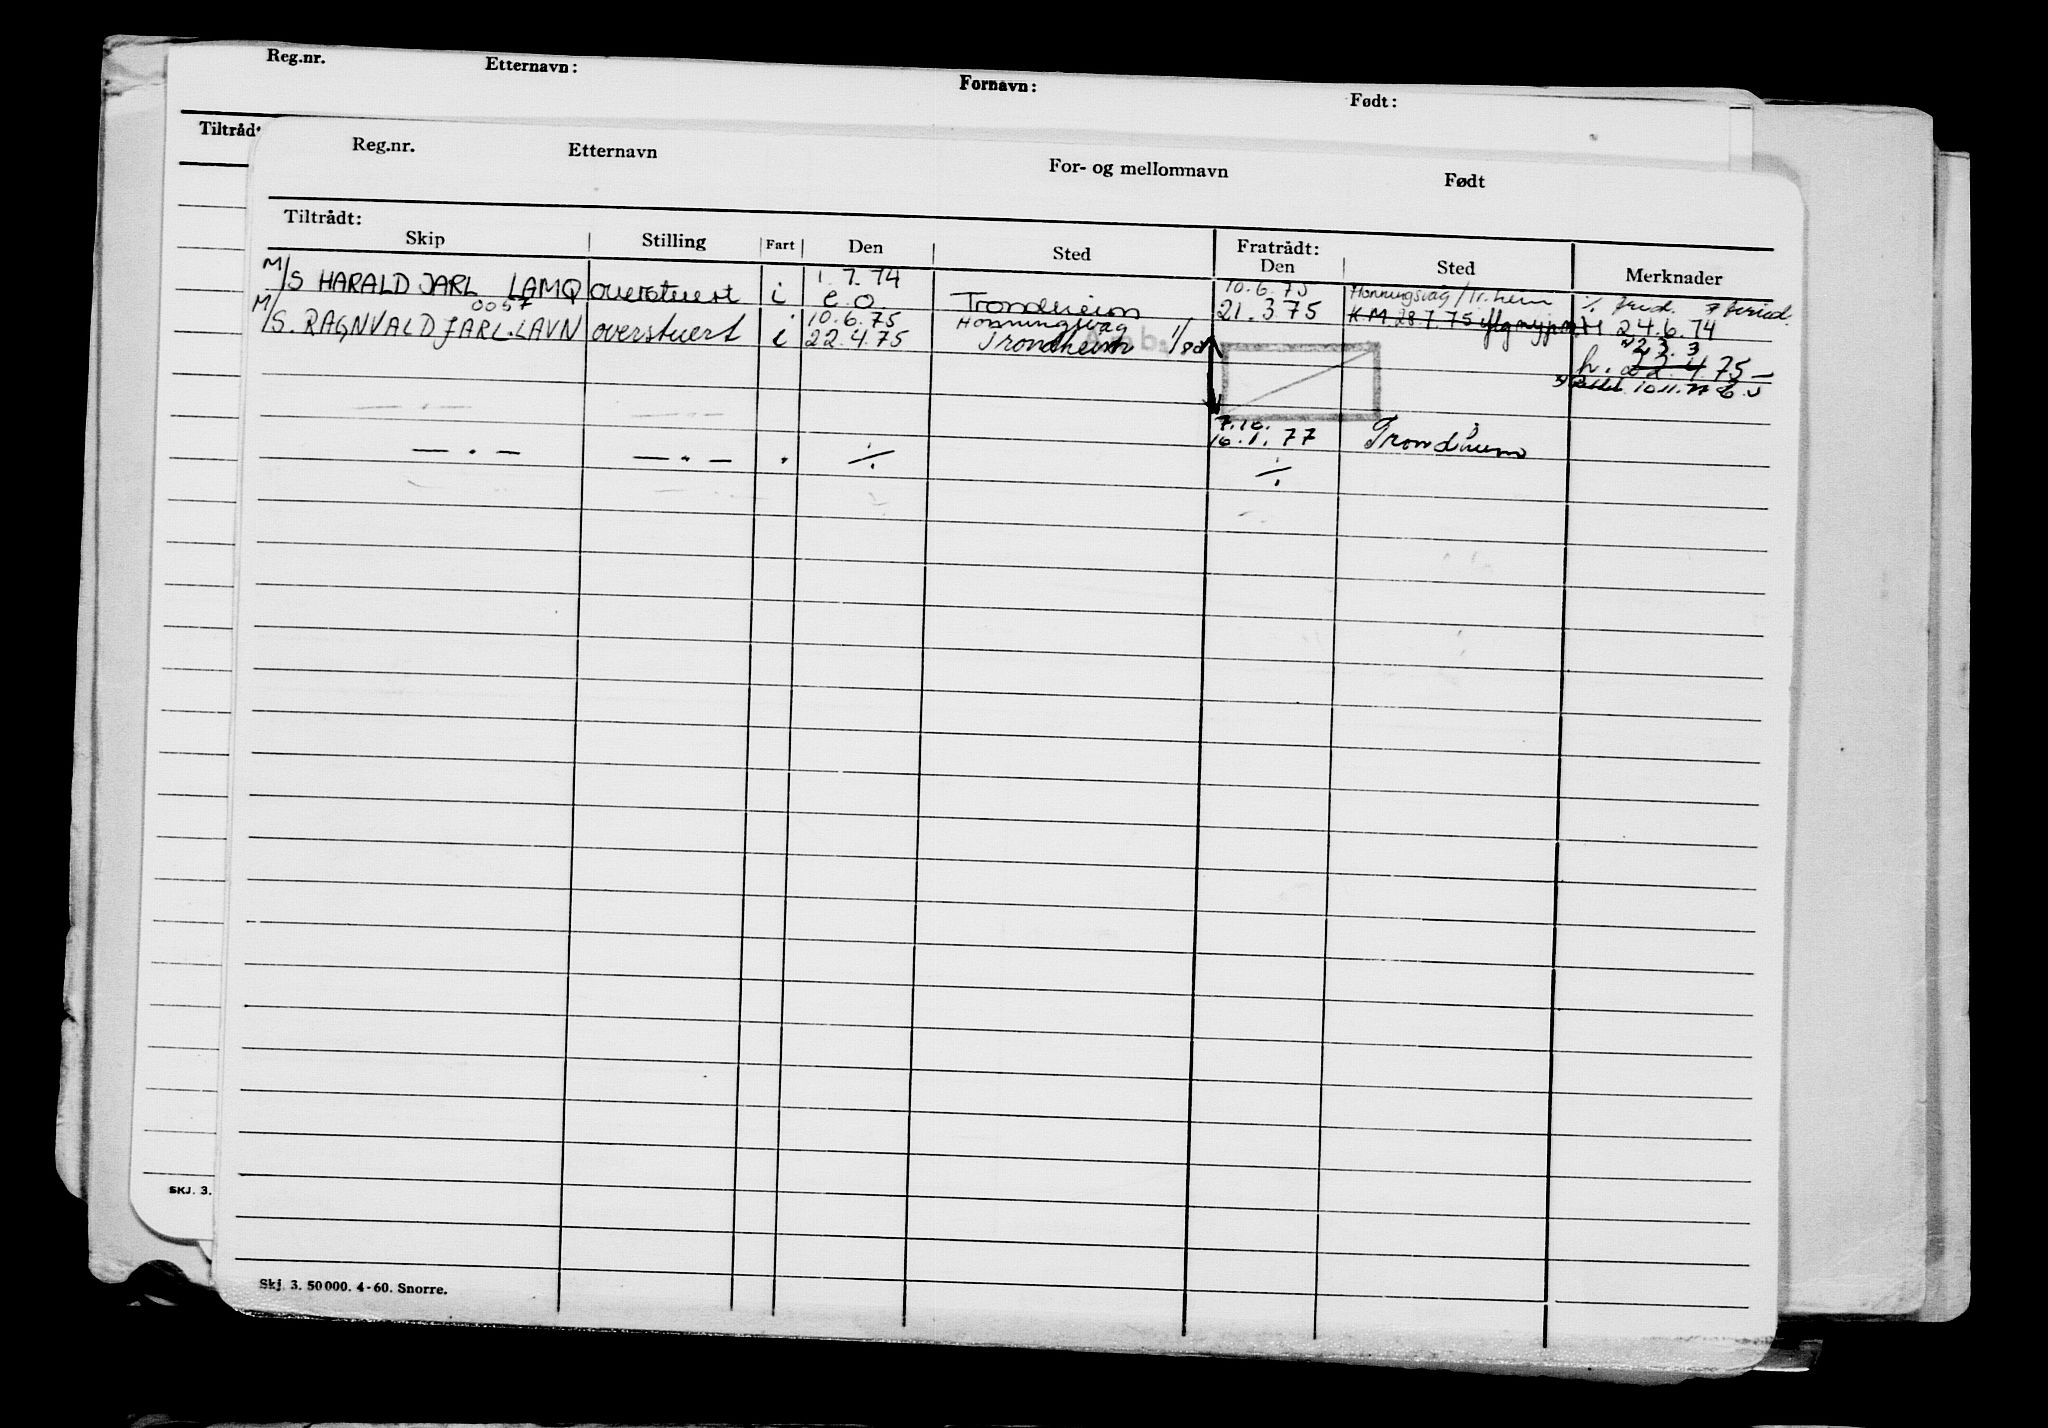 Reg.nr. Etternavn: Fornavn: Født:
Tiltråd
Reg.nr. Etternavn For- og mellomnavn Født
Tiltrådt: Fratrådt:
Skip Stilling Fart Den Sted Den Sted Merknader
1.7.74 10.6.75 Honningsvåg/Tr.heim
M/S HARALD JARL LAMQ overstuert i e.o. Trondheim 21.3.75 K M 28.7.75 24.6.74
0057 10.6.75 Honningsvåg
M/S. RAGNVALD JARL. LAVN overstuert i 22.4.75 Trondheim
h. 22.4.75
10.11.77
7.10.
16.1.77 Trondheim
— . — — . — . ./. ./.
SKJ. 3.
Skj. 3. 50 000. 4-60. Snorre.